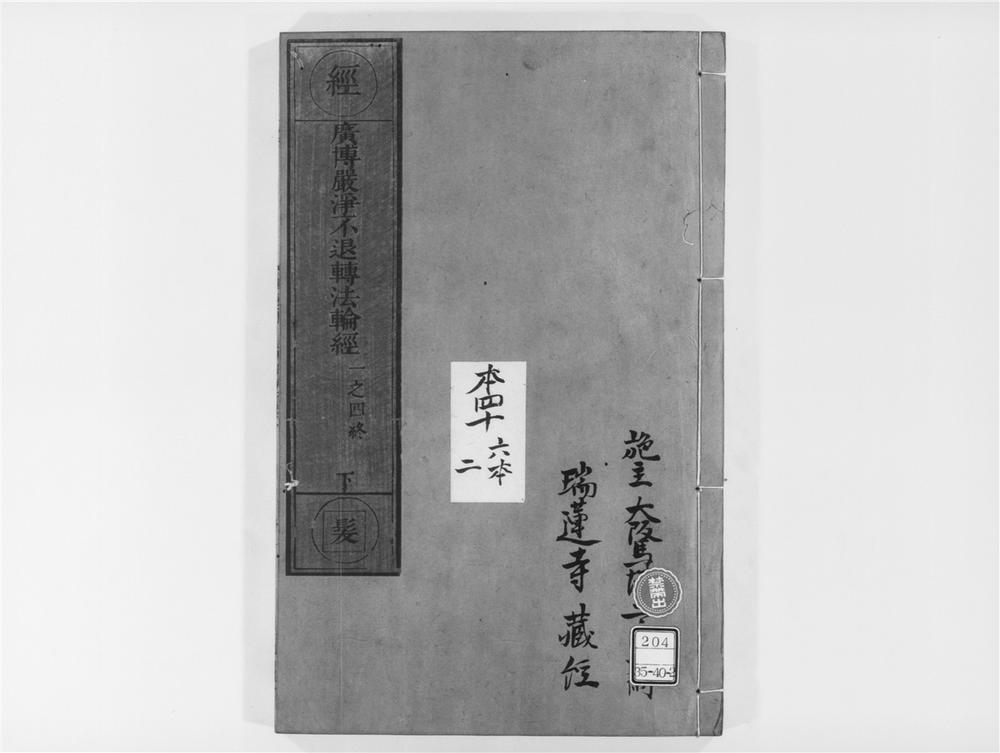 施主 大阪
瑞蓮寺 藏経
禁帯出
204
35-40-2
本四十
六本
二
經
廣博嚴淨不退轉法輪經 一之四終
下
髪